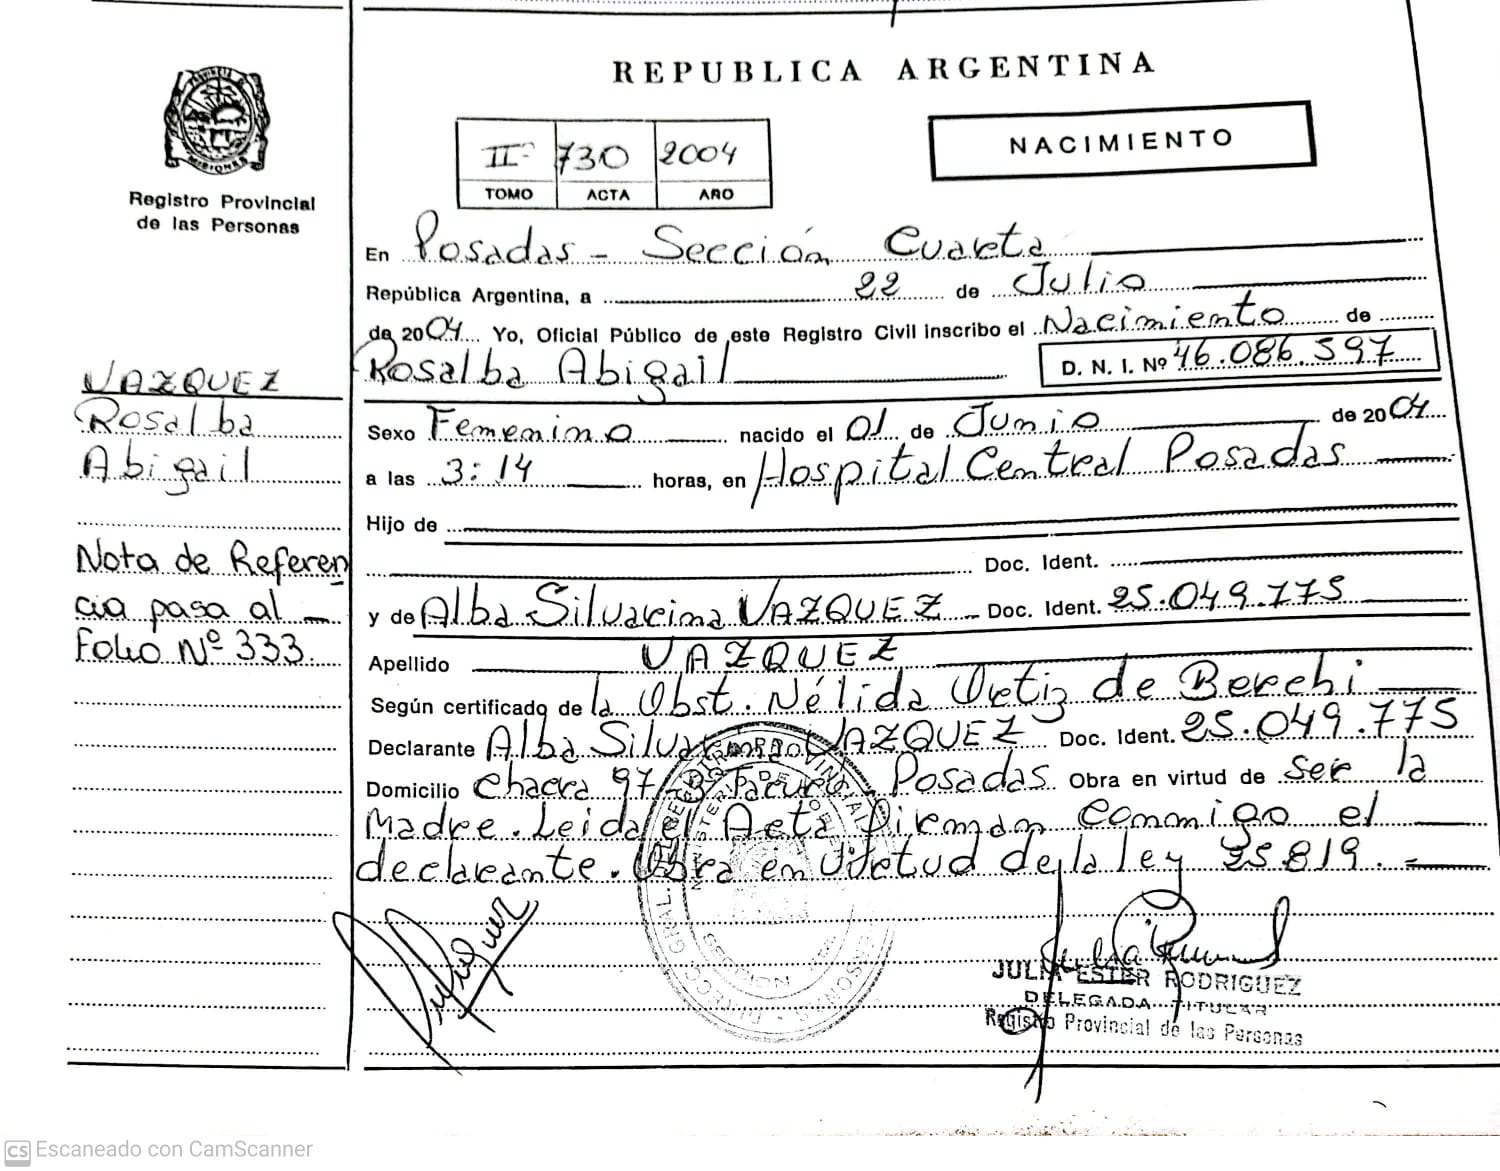 REPUBLICA ARGENTINA
MISIONES
Registro Provincial
de las Personas
IIº 730 2004
TOMO ACTA AÑO
NACIMIENTO
En Posadas - Sección Cuarta
República Argentina, a 22 de Julio
de 2004. Yo, Oficial Público de este Registro Civil inscribo el Nacimiento de
Rosalba Abigail
D. N. I. Nº 46.086.597
Sexo Femenino nacido el 01 de Junio de 2004
a las 3:14 horas, en Hospital Central Posadas
Hijo de
Doc. Ident.
y de Alba Silvarina VAZQUEZ - Doc. Ident. 25.049.775
Apellido VAZQUEZ
Según certificado de la Obst. Nélida Ortiz de Berchi
Declarante Alba Silvarina VAZQUEZ Doc. Ident. 25.049.775
Domicilio Chacra 97 Posadas Obra en virtud de Ser la
Madre. Leida el Acta Firman Conmigo el
declarante. Obra en Virtud de la ley 25.819.
VAZQUEZ
Rosalba
Abigail
Nota de Referen
cia pasa al
Folio Nº 333.
JULIA ESTER RODRIGUEZ
DELEGADA TITULAR
Registro Provincial de las Personas
CS Escaneado con CamScanner